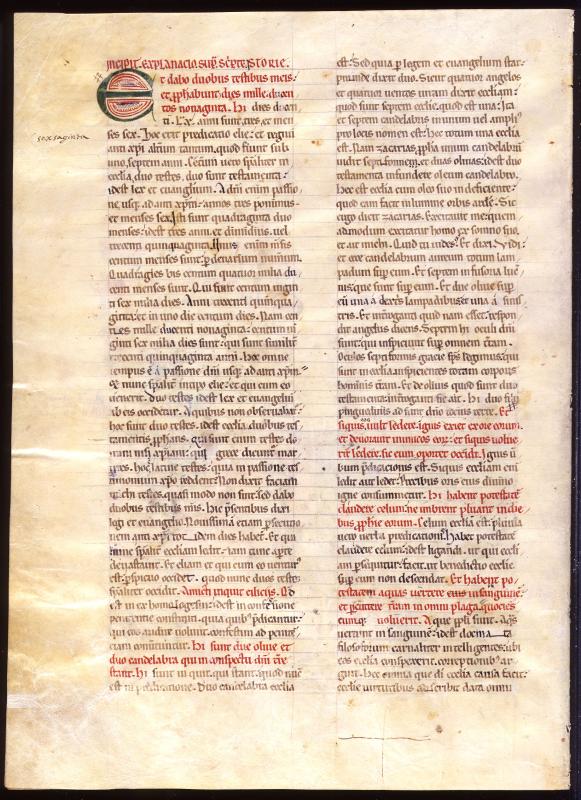 Incipit explanacio supra scripte storie.
Et dabo duobus testibus meis
et prophetabunt dies mille ducen
tos nonaginta. Hi dies ducen
ti. Lx. anni sunt tres. et men
sex saginta
ses sex. Hoc erit predicatio elie: et regni
anti xpi alterum tantum. quod fiunt sub
uno. septem anni.
ecclesia. duo testes. duo sunt testamenta:
idest lex et euanglium. A dni enim passio
ne. usque ad anti xpm: annos tres ponimus
et menses sex. Isti sunt quadraginta duo
menses: idest tres anni. et dimidius. uel
trecenti quinquaginta. enim
centum menses sunt: per denarium numerum.
Quadragies bis centum quatuor milia du
centi menses sunt. Qui sunt centum uigin
ti sex milia dies. Anni trecenti quinqua
ginta: et in uno die centum dies. Nam cen
ties mille ducenti nonaginta: centum ui
ginti sex milia dies sunt: qui sunt similiter
trecenti quinquaginta anni. hec omne
tempus est a passione dni usque ad anti xpm.
et nunc spaliter incipio elie: et qui cum eo
uenerit. Duo testes idest lex et euangelium
ab eis occidetur. A quibus non obseruabitur:
hoc sunt duo testes. idest ecclesia. duobus tes
tamentis. prophetans. qui sunt enim testes do
mini nisi xpiani: qui grece dicuntur mar
tyres. hoc latine testes: quia in passione tes
timonium xpo reddent? Non dixit faciam
mihi testes. quasi modo non sunt. sed dabo
duobus testibus meis. hic presentibus dixit
legi et euangelio. Nouissimam etiam persecutio
nem anti xpi totidem dies habet. Et qui
nunc spaliter ecclesiam ledit. tam tunc aperte
deuastauit. Et eliam et qui cum eo uenturus
est: perspicio occidet. quod nunc duos testes
spaliter occidit. Amen inquit eiicitis. Qd
est in ex homologesim: idest in confessione
penitentie constituti. quia quibus predicantur:
qui eos audire uolunt. confestim ad penite
ciam conuertuntur. Hi sunt due oliue et
duo candelabra qui in conspectu dni terre
stant. Hi sunt inquit. qui stant: quod nunc
est in predicatione. Duo candelabra ecclesia
est. Sed quia per legem et euangelium star
perinde dixit duo. Sicut quatuor angelos
et quatuor uentos unam dixit ecclesiam:
quod sunt septem ecclesie. quod est una: Ita
et septem candelabris unum uel amplius
pro locis nomen est: hec totum una ecclesia
est. Nam zacarias. ppha unum candelabrum
uidit septiforme. et duas oliuas: idest duo
testamenta infundere oleum candelabro.
Hec est ecclesia cum oleo suo indeficiente:
quod eam facit in lumine orbis ardere. Sic
ergo dicit zacarias. Excitauit me: quem
admodum excitatur homo ex somno suo.
et ait michi. Quid tu uides? Et dixi. Uidi:
et ecce candelabrum aureum totum lam
padum super eum. Et septem infusoria lucer
nis: que sunt super eum. Et due oliue super
eum una a dextris lampadibus: et una a sinis
tris. Et interogaui quid nam esset: respon
dit angelus dicens. Septem hi oculi dni
sunt: qui inspiciunt super omnem terram.
Oculos septiformis gratie sps legimus: qui
sunt in ecclesia inspicientes totam corpus
hominis terram. Et de oliuis quod sunt duo
testamenta: interogaui sic ait. hi duo filii
pinguedinis ad sunt dno tocius terre. Et
si quis. uult ledere. ignis exiet ex ore eorum.
et deuorauit inimicos eorum: et si quis uolue
rit ledere. sic eum oportet occidi. Ignis
bum predicationis est. Siquis ecclesiam eni
ledit aut leder. Precibus oris eius diuino
igne consumuntur. Hi habent potestatem
claudere celum: ne imbrem pluant in die
bus. pphetie eorum. Celum ecclesia est. pluuia
uero uerba predicationis. habet potestatem
claudere celum: idest ligandi. ut qui eccle
am persequitur: facit. ut benedictio ecclesie
super eum non descendat. Et habent po
testatem aquas uertere eius in sanguine
et percutere terram in omni plaga. quociens
cumque uoluerit. Aque populi sunt. Aquas
uertunt in sanguine: idest doctrina
filosoforum carnaliter intelligentes: ubi
eos ecclesia conspexerit. correptionibus ar
guit. Hec omnia que dei ecclesia causa facit:
ecclesie uirtutibus adscribit data omni